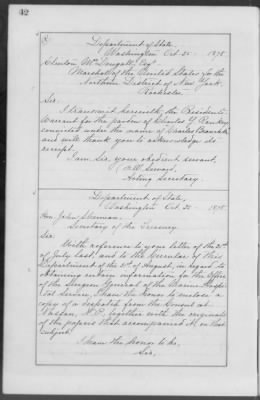 42
Department of State,
Washington Oct. 25. 1878.
Clinton McDougall, Esqr.
Marshal of the United States for the
Northern District of New York.
Rochester.
Sir,
I transmit herewith, the President's
Warrant for the pardon of Charles Y.
convicted under the name of Charles
and will thank you to acknowledge its
receipt.
I am, Sir, your obedient servant,
F. W. Seward,
Acting Secretary.
Department of State,
Washington, Oct. 25 1878.
Hon. John Sherman,
Secretary of the Treasury.
Sir:
With reference to your letter of the
of July last, and to the Circular of this
Department of the of August, in regard to
obtaining certain information for the Office
of the Surgeon General of the Marine Hospi-
tal Service, I have the honor to enclose a
copy of a despatch from the Consul at
Nassau, N.P. together with the originals
of the papers that accompanied it, on that
subject.
I have the honor to be,
Sir,